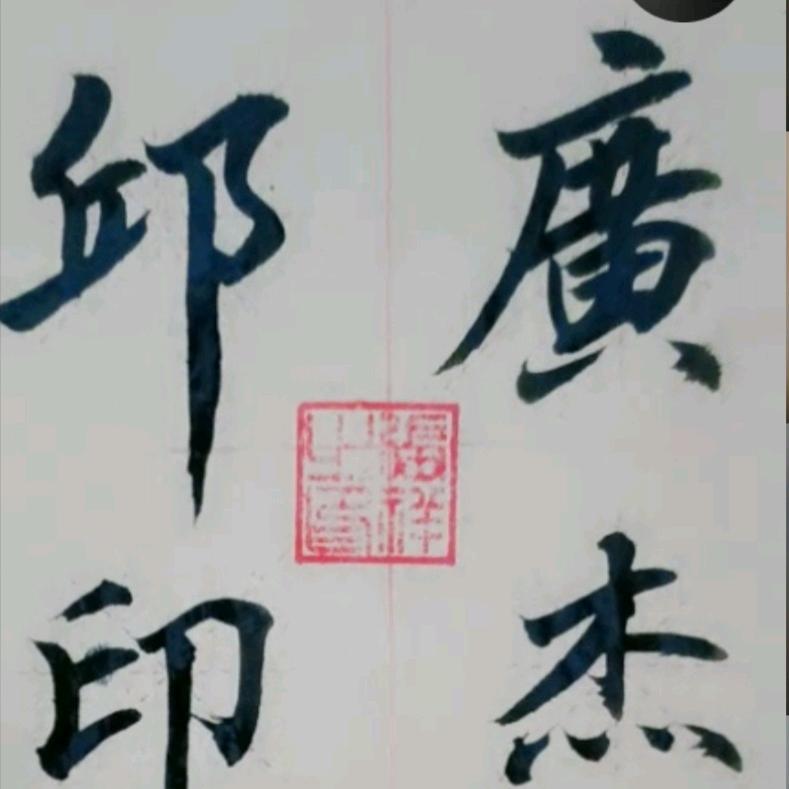 廣杰
邱印